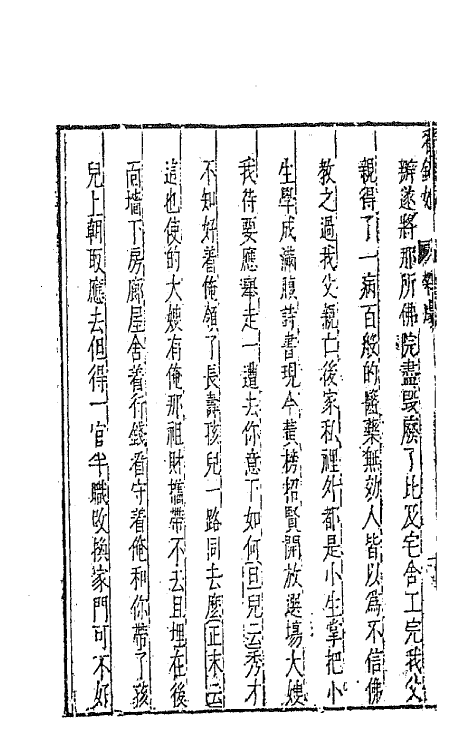 看錢奴
辦遂將那所佛院盡毀廢了比及宅舍工完我父
親得了一病百般的醫藥無効人皆以爲不信佛
教之過我父親亡後家私裡外都是小生掌把小
生學成滿腹詩書現今黃榜招賢開放選場大嫂
我待要應舉走一遭去你意下如何旦兒云秀才
不知好着俺領了長壽孩兒一路同去麽正末云
這也使的大嫂有俺那祖財攜帶不去且埋在後
面墻下房廊屋舍着行錢看守着俺和你帶了孩
兒上朝取應去但得一官半職改換家門可不好